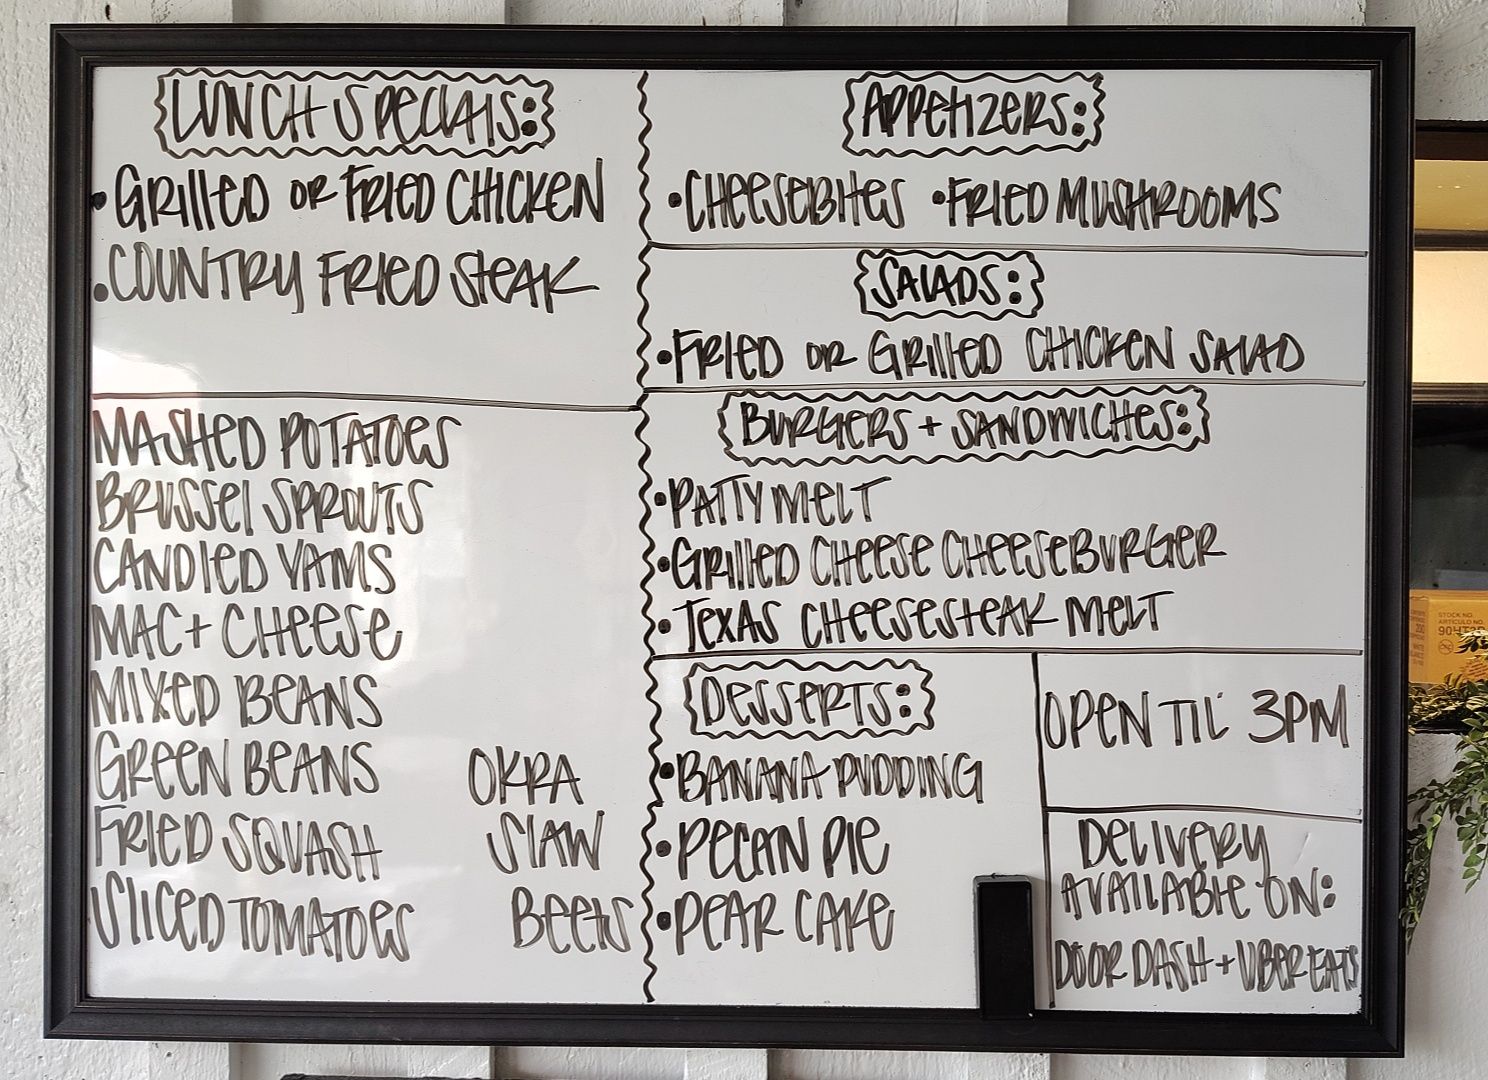 LUNCH SPECIALS:
• GRILLED OR FRIED CHICKEN
• COUNTRY FRIED STEAK
MASHED POTATOES
BRUSSEL SPROUTS
CANDIED YAMS
MAC + CHEESE
MIXED BEANS
GREEN BEANS
FRIED SQUASH
SLICED TOMATOES
OKRA
SLAW
BEETS
APPETIZERS:
• CHEESEBITES • FRIED MUSHROOMS
SALADS:
• FRIED OR GRILLED CHICKEN SALAD
BURGERS + SANDWICHES:
• PATTY MELT
• GRILLED CHEESE CHEESEBURGER
• TEXAS CHEESESTEAK MELT
DESSERTS:
• BANANA PUDDING
• PECAN PIE
• PEAR CAKE
OPEN TIL' 3PM
DELIVERY
AVAILABLE ON:
DOOR DASH + UBER EATS
STOCK NO.
ARTICULO NO.